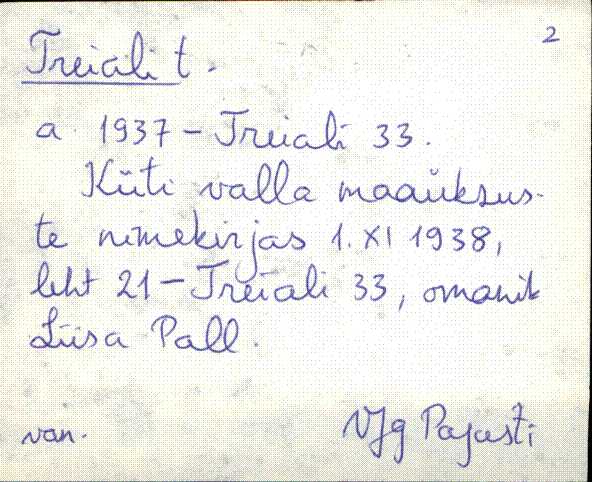 2
Treiali t.
a. 1937 – Treiali 33.
Küti valla maaüksus-
te nimekirjas 1. XI 1938,
leht 21 – Treiali 33, omanik
Liisa Pall.
van. VJg Pajusti